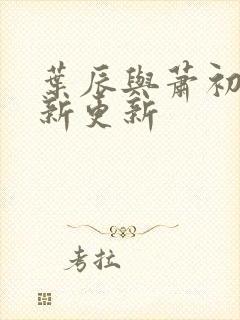 葉辰與蕭初
新更新
考拉